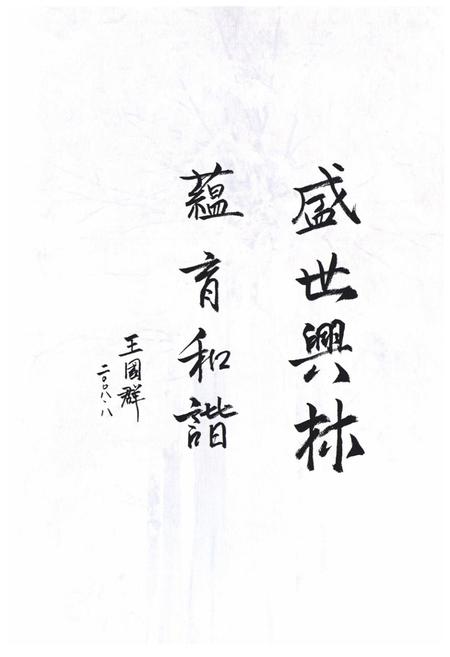 盛世興林
蘊育和諧
王國群
二〇〇八.八